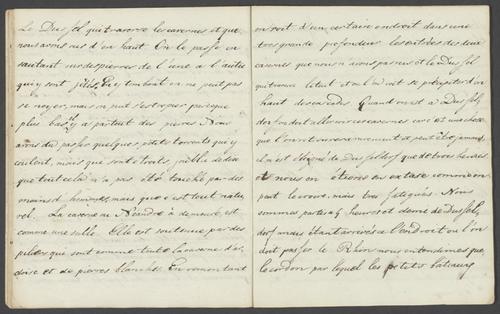 Le Dussel qui traverse les cavernes et que
nous avons vus d'en haut. On le passe en
sautant sur des pierres de l'une à l'autre
qui y sont jetés. En y tombant on ne peut pas
se noyer, mais on peut s'estropier puisque
plus bas il y a partout des pierres. Nous
avons du passer quelques petits torrents qui y
coulent, mais que sont droits
que tout cela n'a pas été touché par des
mains d'hommes, mais que c'est tout natu
rel. La caverne au Néandre à demeure est
comme une salle. Elle est soutenue par des
piliers qui sont comme toute la caverne d'ar
doise et de pierres blanches. En remontant
on voit d'un certain endroit dans une
tres grande profondeur les entrées des deux
cavernes que nous n'avons pas vues et le Dussel
qui traverse le tout et où l'on voit se précipiter d'en
haut des cascades. Quand on est à Dussel
dorf on doit aller voir ces cavernes car c'est une chose
que l'on retrouve rarement et peut être jamais,
il n'est éloigné de Dusseldorf que de trois heures
et nous en étions en extase comme on
peut le croire, mais très fatigués. Nous
sommes partis a 4 heures et demie de Dussel
dorf mais étant arrivés à l'endroit ou l'on
doit passer le Rhin nous entendimes que
le cordon par lequel les petits bateaux